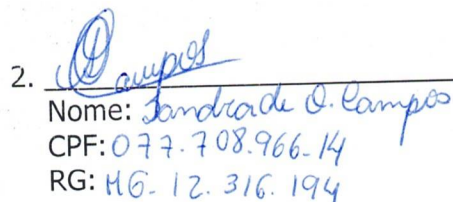 2. Campos
Nome: Sandra de O. Campos
CPF: 077.708.966-14
RG: MG- 12. 316. 194